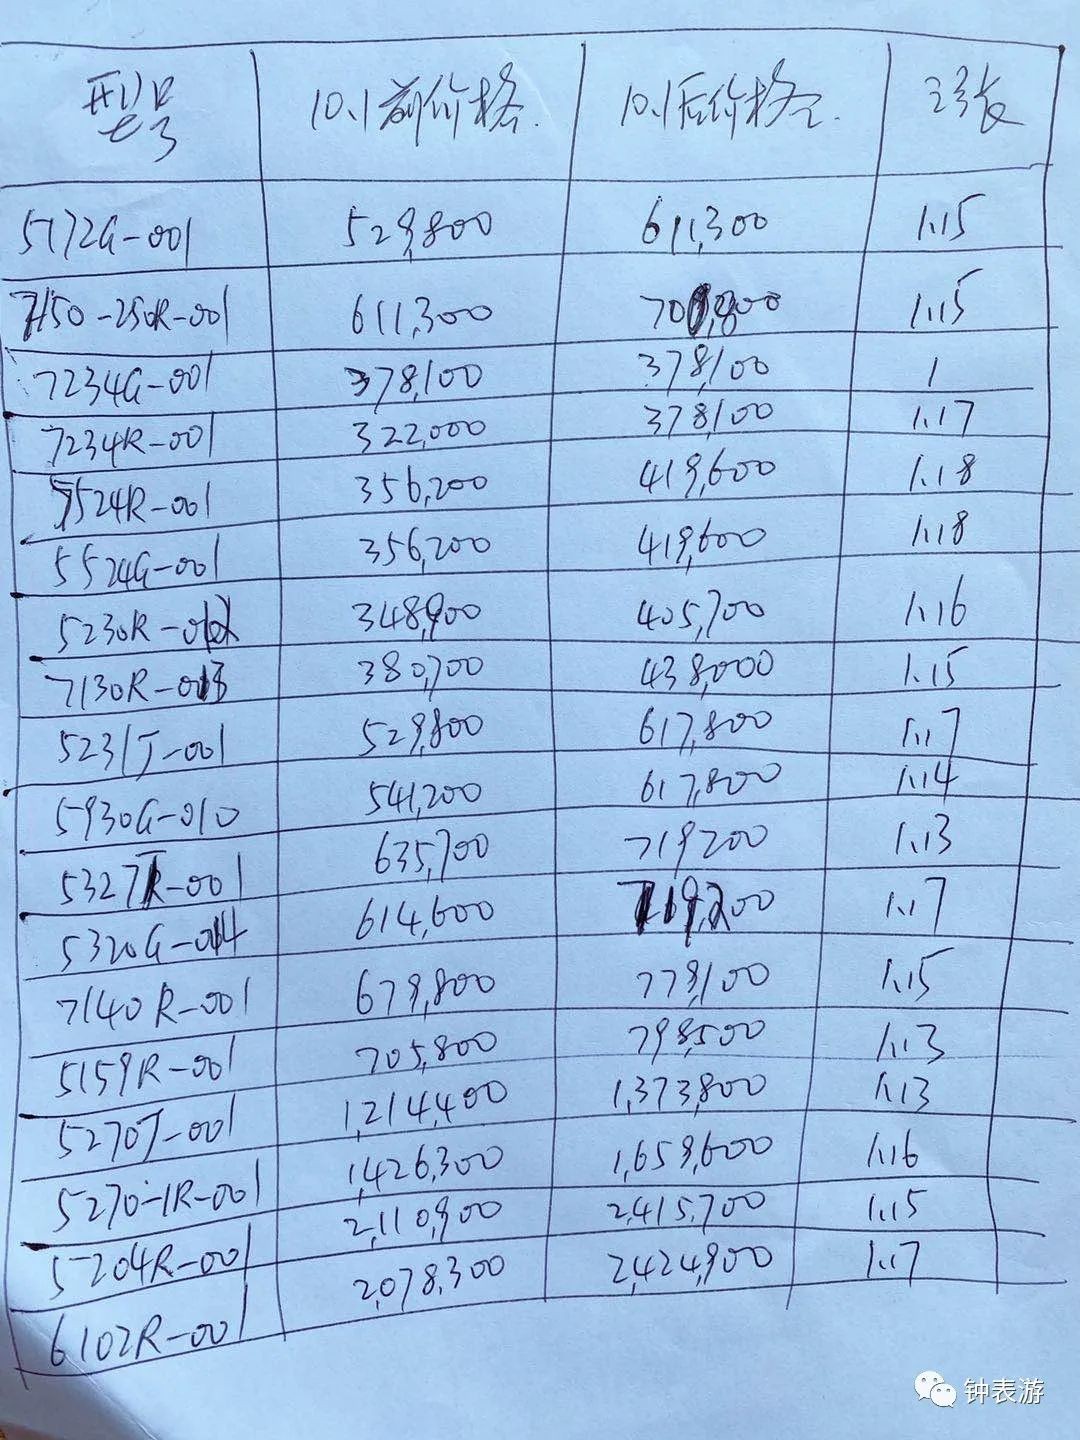 型号 10.1前价格. 10.1后价格. 涨
5172G-001 529,800 611,300 1.15
7150-250R-001 611,300 701,800 1.15
7234G-001 378,100 378,100 1
7234R-001 322,000 378,100 1.17
7524R-001 356,200 419,600 1.18
5524G-001 356,200 419,600 1.18
5230R-012 348,900 405,700 1.16
7130R-013 380,700 438,000 1.15
5231J-001 529,800 617,800 1.17
5930G-010 541,200 617,800 1.14
5327R-001 635,700 719200 1.13
5320G-014 614,600 719,200 1.17
7140R-001 679,800 779,100 1.15
5159R-001 705,800 798,500 1.13
5270J-001 1,214,400 1,373,800 1.13
5270-1R-001 1,426,300 1,659,600 1.16
5204R-001 2,110,900 2,415,700 1.15
6102R-001 2,078,300 2,424,900 1.17
钟表游